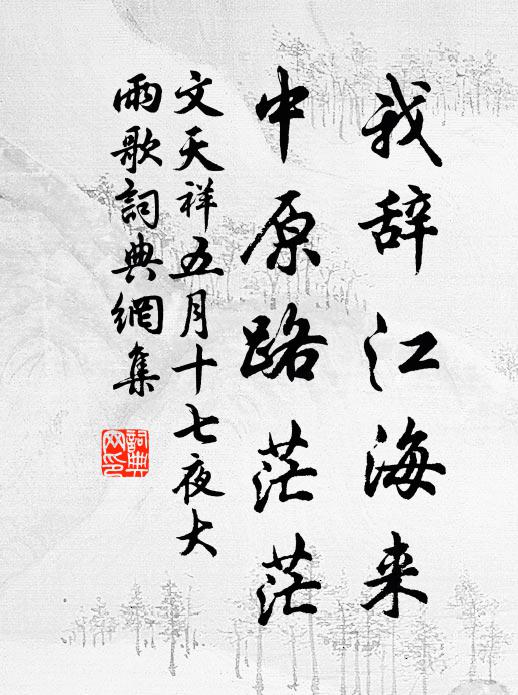 我辞江海来
中原路茫茫
文天祥五月十七夜大
雨歌詞典網集
詞典
网印